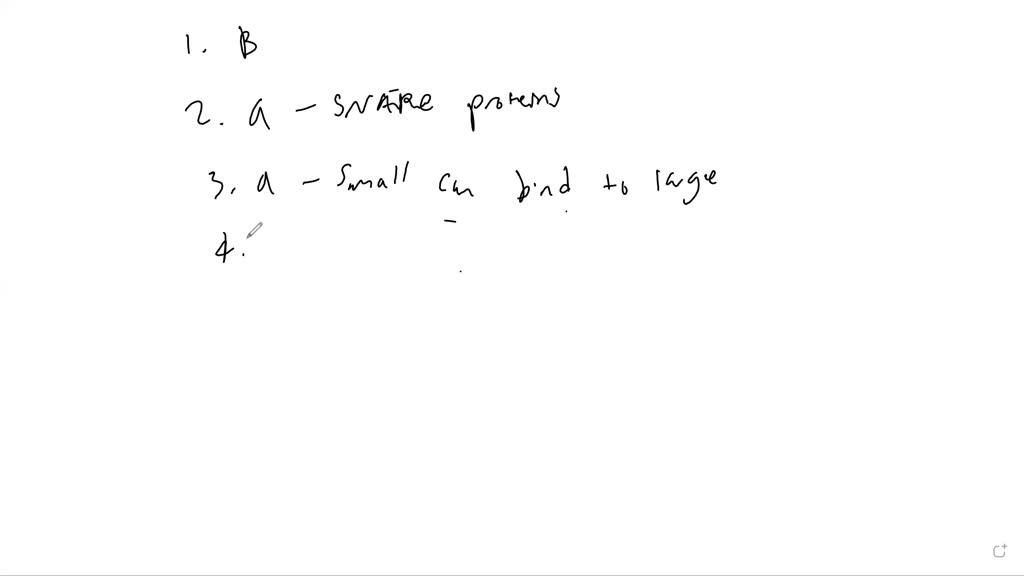 1. B
2. a - SNARE proteins
3. a - Small can bind to large
4.